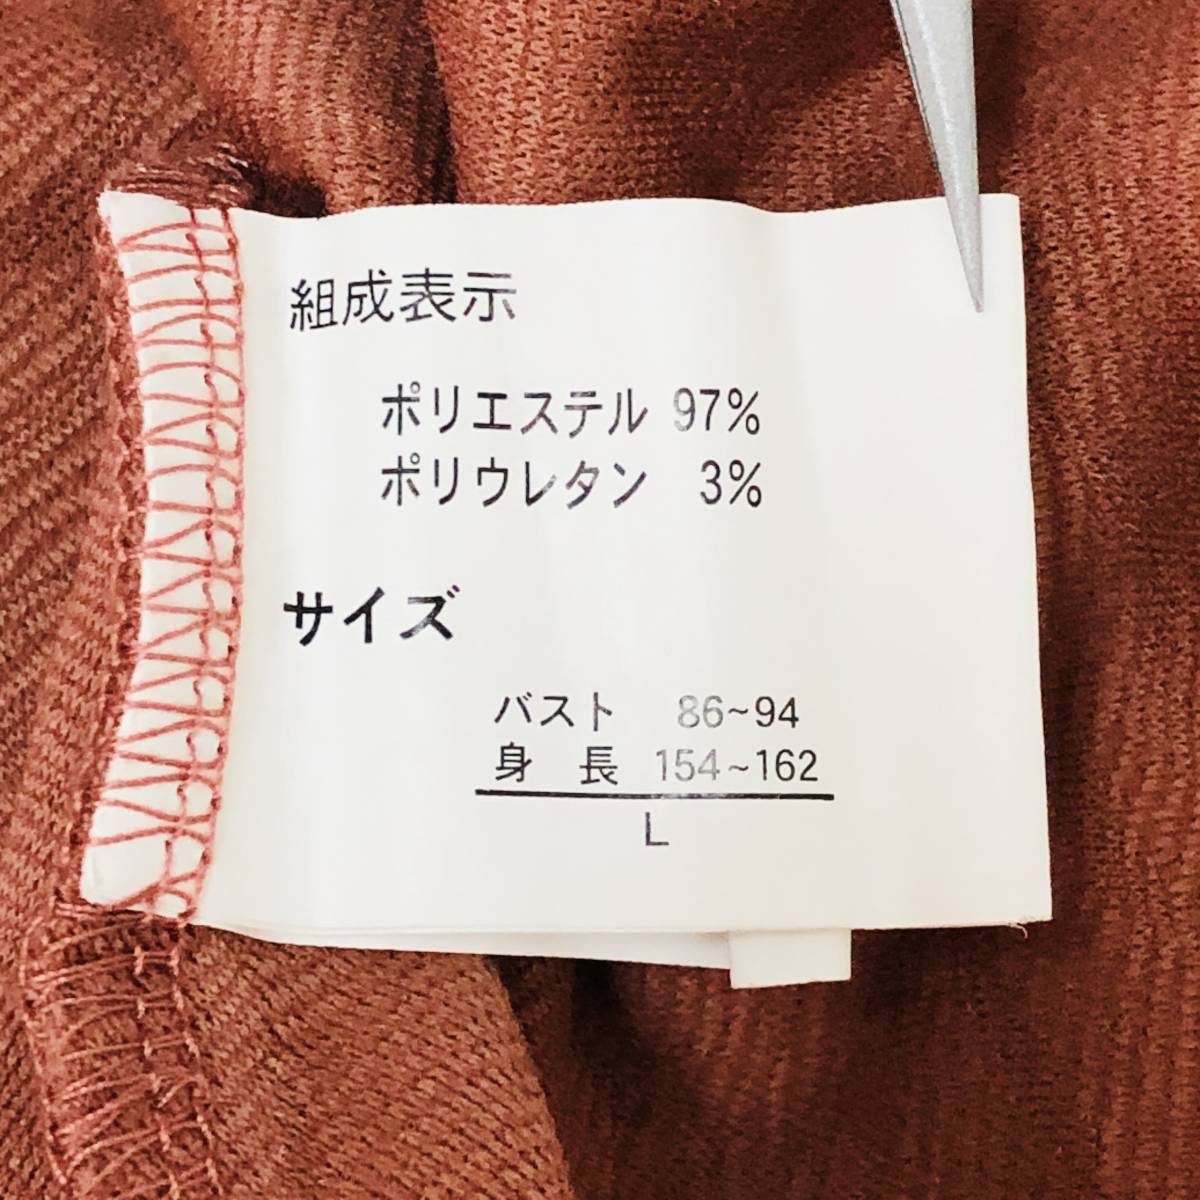 組成表示
ポリエステル 97%
ポリウレタン 3%
サイズ
バスト 86~94
身長 154~162
L